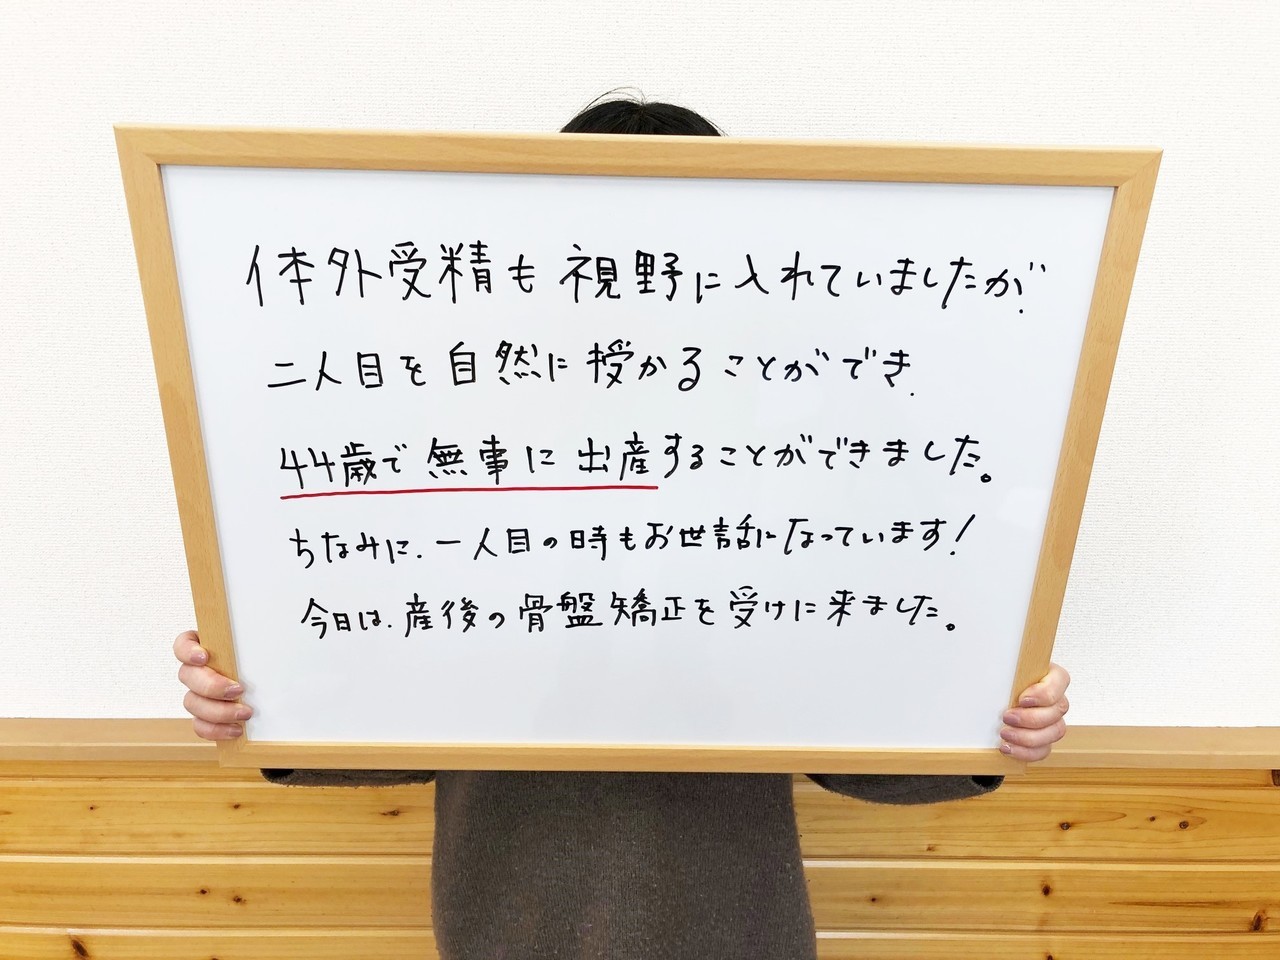 体外受精も視野に入れていましたが、
二人目を自然に授かることができ、
44歳で無事に出産することができました。
ちなみに、一人目の時もお世話になっています!
今日は、産後の骨盤矯正を受けに来ました。